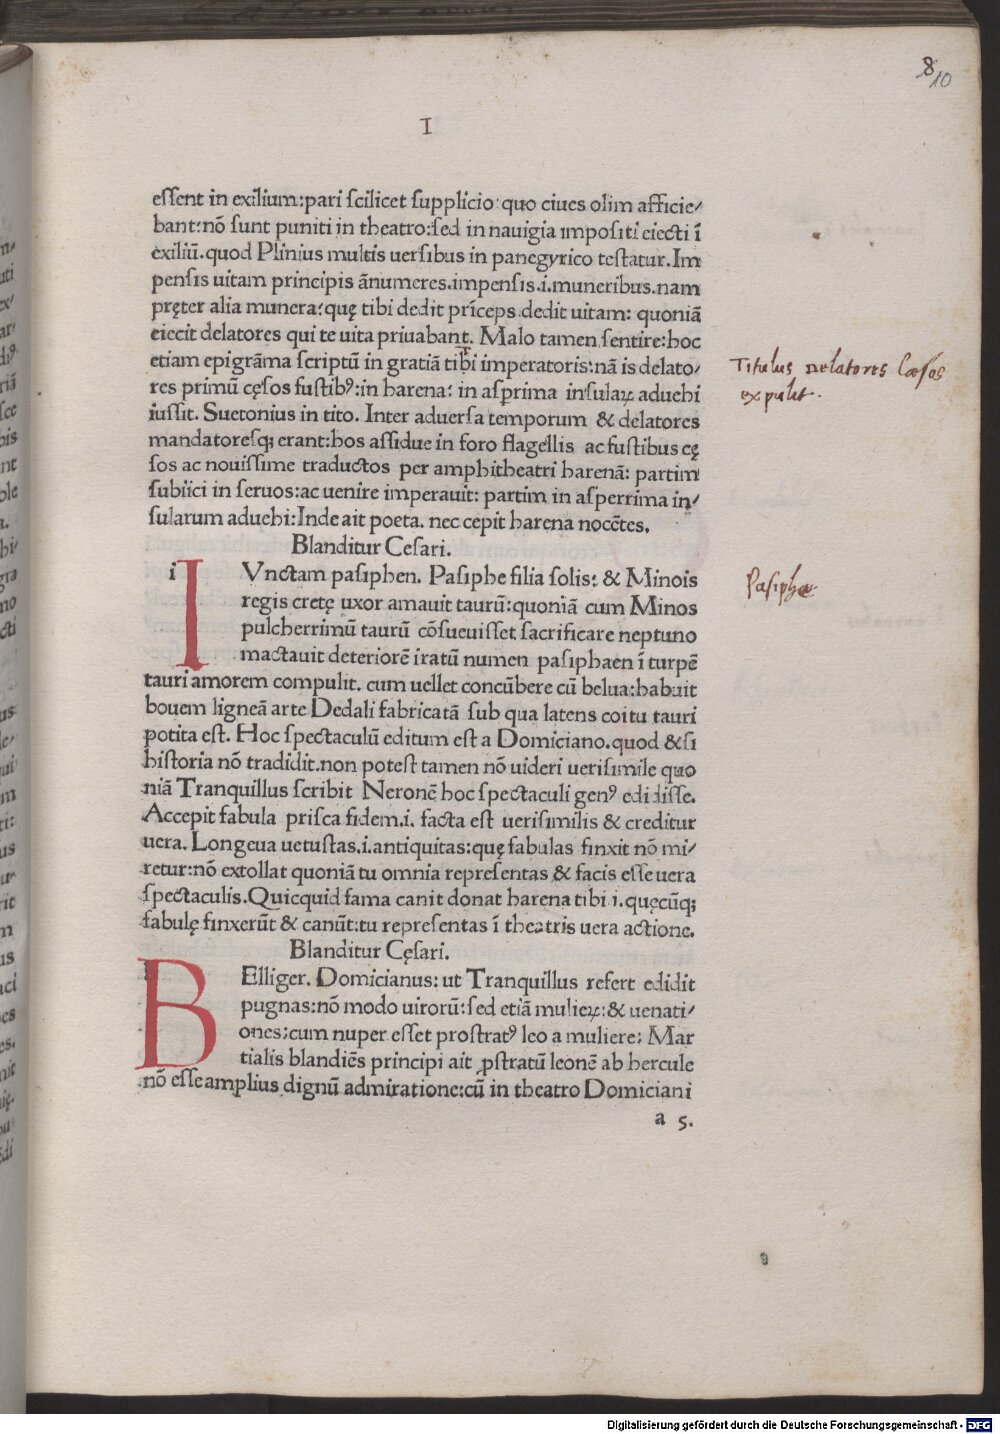 8 10
I
eſſent in exilium:pari ſcilicet ſupplicio:quo ciues olim afficie/
bant:nō ſunt puniti in theatro:ſed in nauigia impoſiti eiecti ī
exiliū.quod Plinius multis uerſibus in panegyrico teſtatur.Im
penſis uitam principis ānumeres.impenſis.i.muneribus.nam
pręter alia munera:quę tibi dedit prīceps dedit uitam: quoniā
eiecit delatores qui te uita priuabant. Malo tamen ſentire:hoc
etiam epigrāma ſcriptū in gratiā tibi imperatoris:nā is delato/
res primū cęſos fuſtibꝰ:in harena: in aſprima inſulaꝝ aduehi
iuſſit. Suetonius in tito. Inter aduerſa temporum & delatores
mandatoreſqꝫ erant:hos aſſidue in foro flagellis ac fuſtibus cę
ſos ac nouiſſime traductos per amphitheatri harenā: partim
ſubiici in ſeruos:ac uenire imperauit: partim in aſperrima in/
ſularum aduehi:Inde ait poeta. nec cepit harena nocētes.
Titulus delatores Cæsos
expulit.
Blanditur Ceſari.
i I Vnctam paſiphen. Paſiphe filia ſolis: & Minois
regis cretę uxor amauit taurū:quoniā cum Minos
pulcherrimū taurū cōſueuiſſet ſacrificare neptuno
mactauit deteriorē iratū numen paſiphaen ī turpē
tauri amorem compulit. cum uellet concūbere cū belua:habuit
bouem ligneā arte Dedali fabricatā ſub qua latens coitu tauri
potita eſt. Hoc ſpectaculū editum eſt a Domiciano.quod &ſi
hiſtoria nō tradidit.non poteſt tamen nō uideri ueriſimile quo
niā Tranquillus ſcribit Neronē hoc ſpectaculi genꝰ edidiſſe.
Accepit fabula priſca fidem.i. facta eſt ueriſimilis & creditur
uera. Longeua uetuſtas.i.antiquitas:quę fabulas finxit nō mi/
retur:nō extollat quoniā tu omnia repreſentas & facis eſſe uera
ſpectaculis.Quicquid fama canit donat harena tibi i.quęcūqꝫ
fabulę finxerūt & canūt:tu repreſentas ī theatris uera actione.
Pasiphæ
Blanditur Cęſari.
B Elliger. Domicianus: ut Tranquillus refert edidit
pugnas:nō modo uirorū:ſed etiā mulieꝝ:& uenati/
ones:cum nuper eſſet proſtratꝰ leo a muliere: Mar
tialis blandiēs principi ait ꝓſtratū leonē ab hercule
nō eſſe amplius dignū admiratione:cū in theatro Domiciani
a 5.
Digitalisierung gefördert durch die Deutsche Forschungsgemeinschaft - DFG